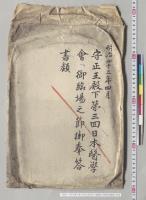 明治四十三年四月
守正王殿下第三回日本醫學
會ヘ御臨場之節御奉答
書類